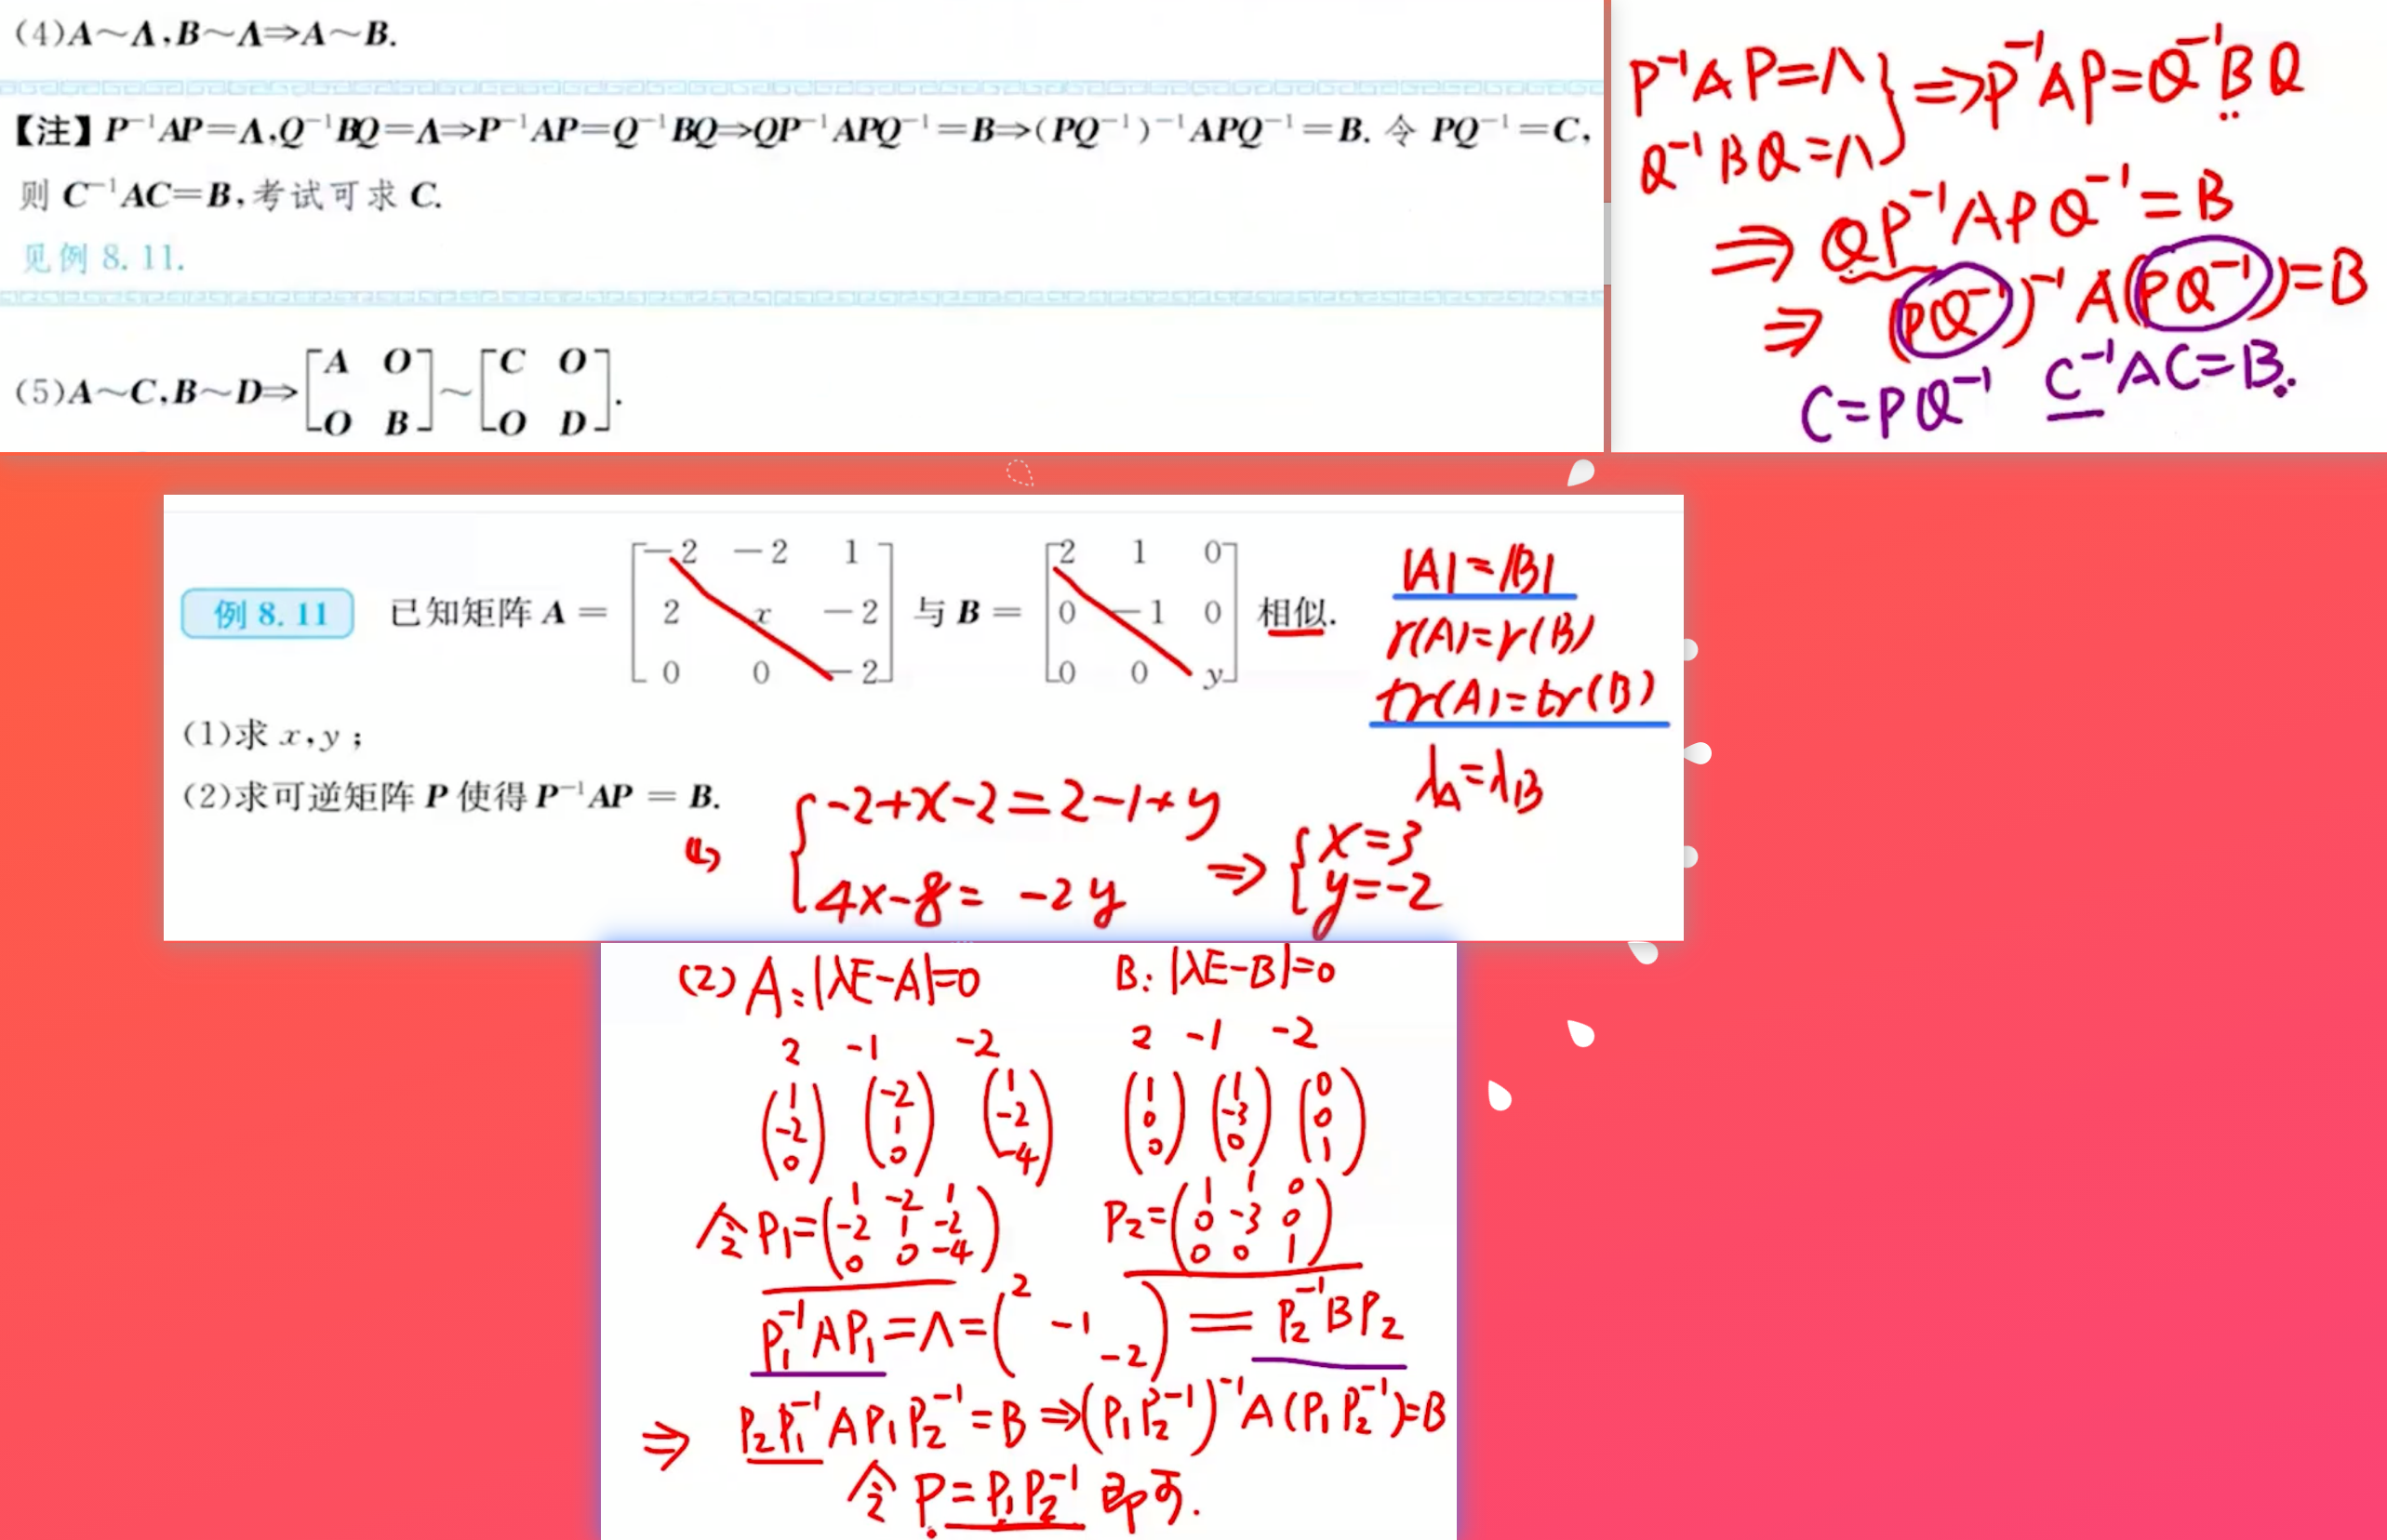 (4)A∼Λ,B∼Λ⇒A∼B.
【注】P⁻¹AP=Λ,Q⁻¹BQ=Λ⇒P⁻¹AP=Q⁻¹BQ⇒QP⁻¹APQ⁻¹=B⇒(PQ⁻¹)⁻¹APQ⁻¹=B. 令 PQ⁻¹=C,
则 C⁻¹AC=B,考试可求 C.
见例 8.11.
(5)A∼C,B∼D⇒[A O; O B]∼[C O; O D].
P⁻¹AP=Λ
Q⁻¹BQ=Λ
} ⇒P⁻¹AP=Q⁻¹BQ
⇒ QP⁻¹APQ⁻¹=B
⇒ (PQ⁻¹)⁻¹A(PQ⁻¹)=B
C=PQ⁻¹ C⁻¹AC=B.
例 8.11 已知矩阵 A = [−2 −2 1; 2 x −2; 0 0 −2] 与 B = [2 1 0; 0 −1 0; 0 0 y] 相似.
(1)求 x,y;
(2)求可逆矩阵 P 使得 P⁻¹AP = B.
|A|=|B|
r(A)=r(B)
tr(A)=tr(B)
λA=λB
(1) { -2+x-2=2-1+y
4x-8= -2y
⇒ { x=3
y=-2
(2) A: |λE-A|=0 B: |λE-B|=0
2 -1 -2 2 -1 -2
(1 -2 0) (-2 1 0) (1 -2 -4) (1 0 0) (1 -3 0) (0 0 1)
令P₁=(1 -2 1; -2 1 -2; 0 0 -4) P₂=(1 1 0; 0 -3 0; 0 0 1)
P₁⁻¹AP₁=Λ=(2 -1 -2)=P₂⁻¹BP₂
⇒ P₂P₁⁻¹AP₁P₂⁻¹=B⇒(P₁P₂⁻¹)⁻¹A(P₁P₂⁻¹)=B
令 P=P₁P₂⁻¹ 即可.